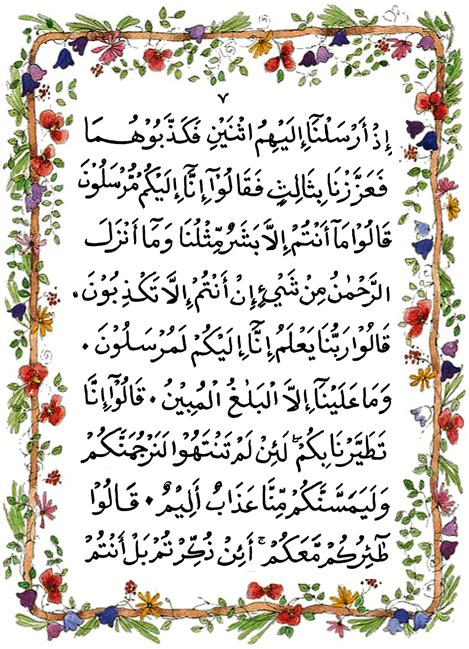 ٧
إِذْ أَرْسَلْنَا إِلَيْهِمُ اثْنَيْنِ فَكَذَّبُوْهُمَا
فَعَزَّزْنَا بِثَالِثٍ فَقَالُوْٓا إِنَّآ إِلَيْكُمْ مُّرْسَلُوْنَ
قَالُوْا مَآ أَنْتُمْ إِلَّا بَشَرٌ مِّثْلُنَا وَمَآ أَنْزَلَ
الرَّحْمٰنُ مِنْ شَيْءٍ إِنْ أَنْتُمْ إِلَّا تَكْذِبُوْنَ.
قَالُوْا رَبُّنَا يَعْلَمُ إِنَّآ إِلَيْكُمْ لَمُرْسَلُوْنَ.
وَمَا عَلَيْنَآ إِلَّا الْبَلٰغُ الْمُبِيْنُ. قَالُوْٓا إِنَّا
تَطَيَّرْنَا بِكُمْ ۖ لَئِنْ لَمْ تَنْتَهُوْا لَنَرْجُمَنَّكُمْ
وَلَيَمَسَّنَّكُمْ مِّنَّا عَذَابٌ أَلِيْمٌ. قَالُوْا
طٰٓئِرُكُمْ مَّعَكُمْ ۚ أَئِنْ ذُكِّرْتُمْ بَلْ أَنْتُمْ